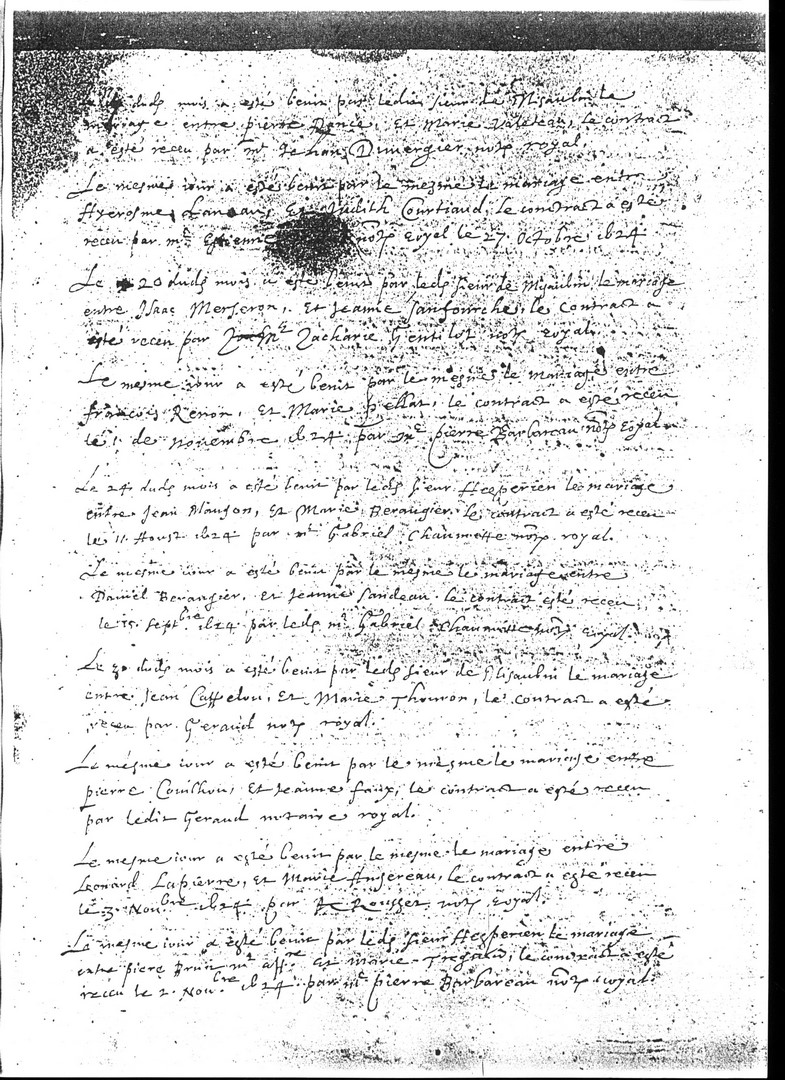 dudt mois a esté benit par ledit sieur de Misaubin le
mariage entre pierre Renié, Et Marie Valeteau, le contract
a esté receu par mr Jehan Dumergier notre royal.
Le mesme iour a esté benit par le mesme le mariage entre
Hyerosme Landeau, Et Judith Courtiaud, le contract a esté
receu par mr Estienne notre Royal le 27 Octobre 1624
Le 20 dudt mois a esté benit par ledt sieur de Misaubin le mariage
entre Isaac Merseron, Et Jeanne Sanfourche, le Contract a
esté receu par Zacharie Gentilot notre Royal.
Le mesme iour a esté benit par le mesme le mariage entre
françois Renon, Et Marie pellat, le contract a esté receu
le 1 de novembre 1624 par mr pierre Barbareau notre Royal
Le 24 dudt mois a esté benit par ledt sieur Hesperien le mariage
entre Jean Maujon, Et Marie Berangier, le contract a esté receu
le 11 Aoust 1624 par mr Gabriel Chaumette notre royal.
Le mesme iour a esté benit par le mesme le mariage entre
Daniel Berangier, et Jeanne Sandeau, le contract esté receu
le 15 Septbre 1624 par ledt mr Gabriel Chaumette notre Royal
Le 30 dudt mois a esté benit par ledt sieur de Misaubin le mariage
entre Jean Caffelou, Et Marie Thouron, le contract a esté
receu par Geraud notre royal.
Le mesme iour a esté benit par le mesme le mariage entre
pierre Couichou, Et Jeanne faux, le contract a esté receu
par ledit Geraud notaire royal.
Le mesme iour a esté benit par le mesme le mariage entre
Leonard Lapierre, Et Marie Ansereau, le contract a esté receu
le 3 Novbre 1624 par Rousset notre Royal.
Le mesme iour a esté benit par ledt sieur Hesperien le mariage
entre piere Brun mr Et marie Tregaud, le contract a esté
receu le 2 Novbre 1624 par mr pierre Barbareau notre royal.